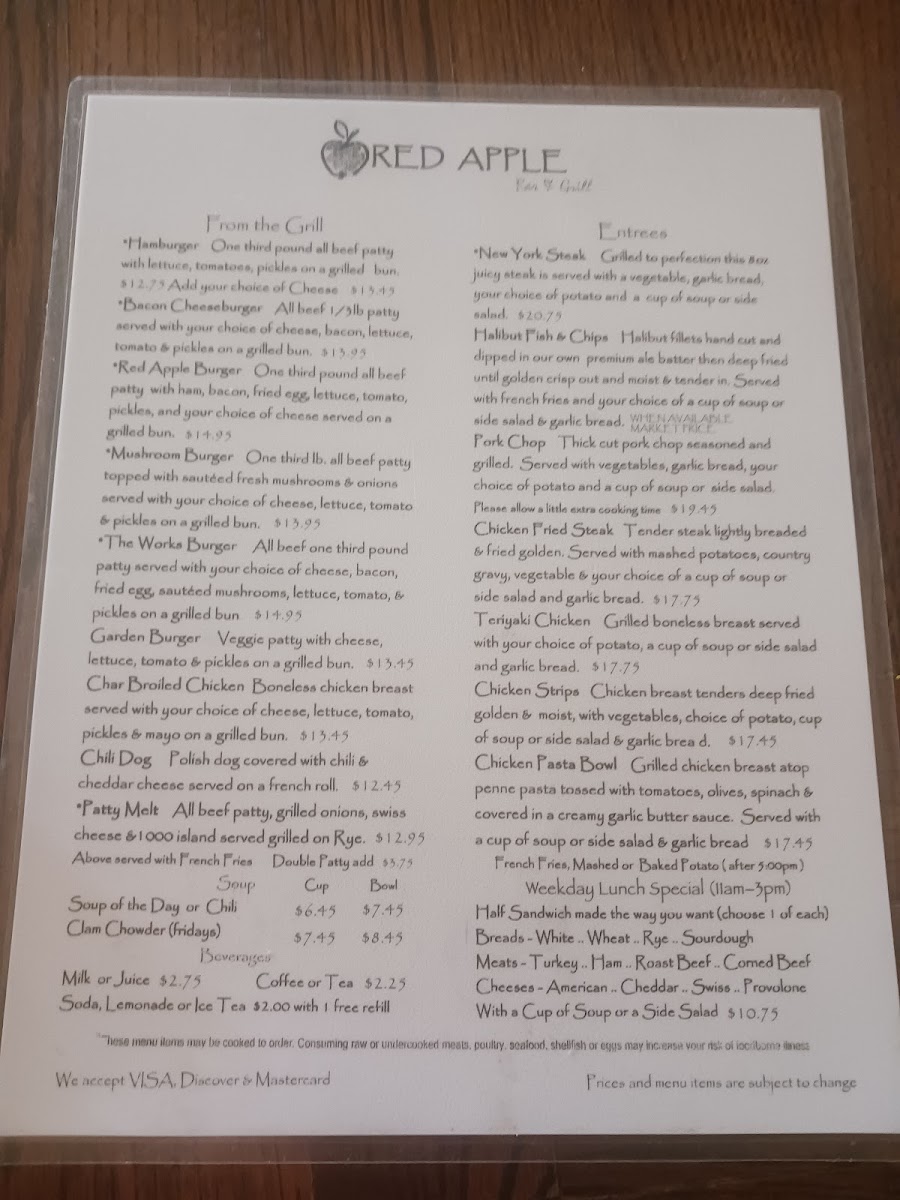 RED APPLE
Bar & Grill
From the Grill
*Hamburger One third pound all beef patty
with lettuce, tomatoes, pickles on a grilled bun.
$12.75 Add your choice of Cheese $13.45
*Bacon Cheeseburger All beef 1/3lb patty
served with your choice of cheese, bacon, lettuce,
tomato & pickles on a grilled bun. $13.95
*Red Apple Burger One third pound all beef
patty with ham, bacon, fried egg, lettuce, tomato,
pickles, and your choice of cheese served on a
grilled bun. $14.95
*Mushroom Burger One third lb. all beef patty
topped with sautéed fresh mushrooms & onions
served with your choice of cheese, lettuce, tomato
& pickles on a grilled bun. $13.95
*The Works Burger All beef one third pound
patty served with your choice of cheese, bacon,
fried egg, sautéed mushrooms, lettuce, tomato, &
pickles on a grilled bun $14.95
Garden Burger Veggie patty with cheese,
lettuce, tomato & pickles on a grilled bun. $13.45
Char Broiled Chicken Boneless chicken breast
served with your choice of cheese, lettuce, tomato,
pickles & mayo on a grilled bun. $13.45
Chili Dog Polish dog covered with chili &
cheddar cheese served on a french roll. $12.45
*Patty Melt All beef patty, grilled onions, swiss
cheese &1000 island served grilled on Rye. $12.95
Above served with French Fries Double Patty add $3.75
Soup Cup Bowl
Soup of the Day or Chili $6.45 $7.45
Clam Chowder (fridays) $7.45 $8.45
Beverages
Milk or Juice $2.75 Coffee or Tea $2.25
Soda, Lemonade or Ice Tea $2.00 with 1 free refill
Entrees
*New York Steak Grilled to perfection this 8oz
juicy steak is served with a vegetable, garlic bread,
your choice of potato and a cup of soup or side
salad. $20.75
Halibut Fish & Chips Halibut fillets hand cut and
dipped in our own premium ale batter then deep fried
until golden crisp out and moist & tender in. Served
with french fries and your choice of a cup of soup or
side salad & garlic bread. WHEN AVAILABLE
MARKET PRICE
Pork Chop Thick cut pork chop seasoned and
grilled. Served with vegetables, garlic bread, your
choice of potato and a cup of soup or side salad.
Please allow a little extra cooking time $19.45
Chicken Fried Steak Tender steak lightly breaded
& fried golden. Served with mashed potatoes, country
gravy, vegetable & your choice of a cup of soup or
side salad and garlic bread. $17.75
Teriyaki Chicken Grilled boneless breast served
with your choice of potato, a cup of soup or side salad
and garlic bread. $17.75
Chicken Strips Chicken breast tenders deep fried
golden & moist, with vegetables, choice of potato, cup
of soup or side salad & garlic brea d. $17.45
Chicken Pasta Bowl Grilled chicken breast atop
penne pasta tossed with tomatoes, olives, spinach &
covered in a creamy garlic butter sauce. Served with
a cup of soup or side salad & garlic bread $17.45
French Fries, Mashed or Baked Potato (after 5:00pm)
Weekday Lunch Special (11am-3pm)
Half Sandwich made the way you want (choose 1 of each)
Breads - White .. Wheat .. Rye .. Sourdough
Meats - Turkey .. Ham .. Roast Beef .. Corned Beef
Cheeses - American .. Cheddar .. Swiss .. Provolone
With a Cup of Soup or a Side Salad $10.75
*These menu items may be cooked to order. Consuming raw or undercooked meats, poultry, seafood, shellfish or eggs may increase your risk of foodborne illness
We accept VISA, Discover & Mastercard
Prices and menu items are subject to change